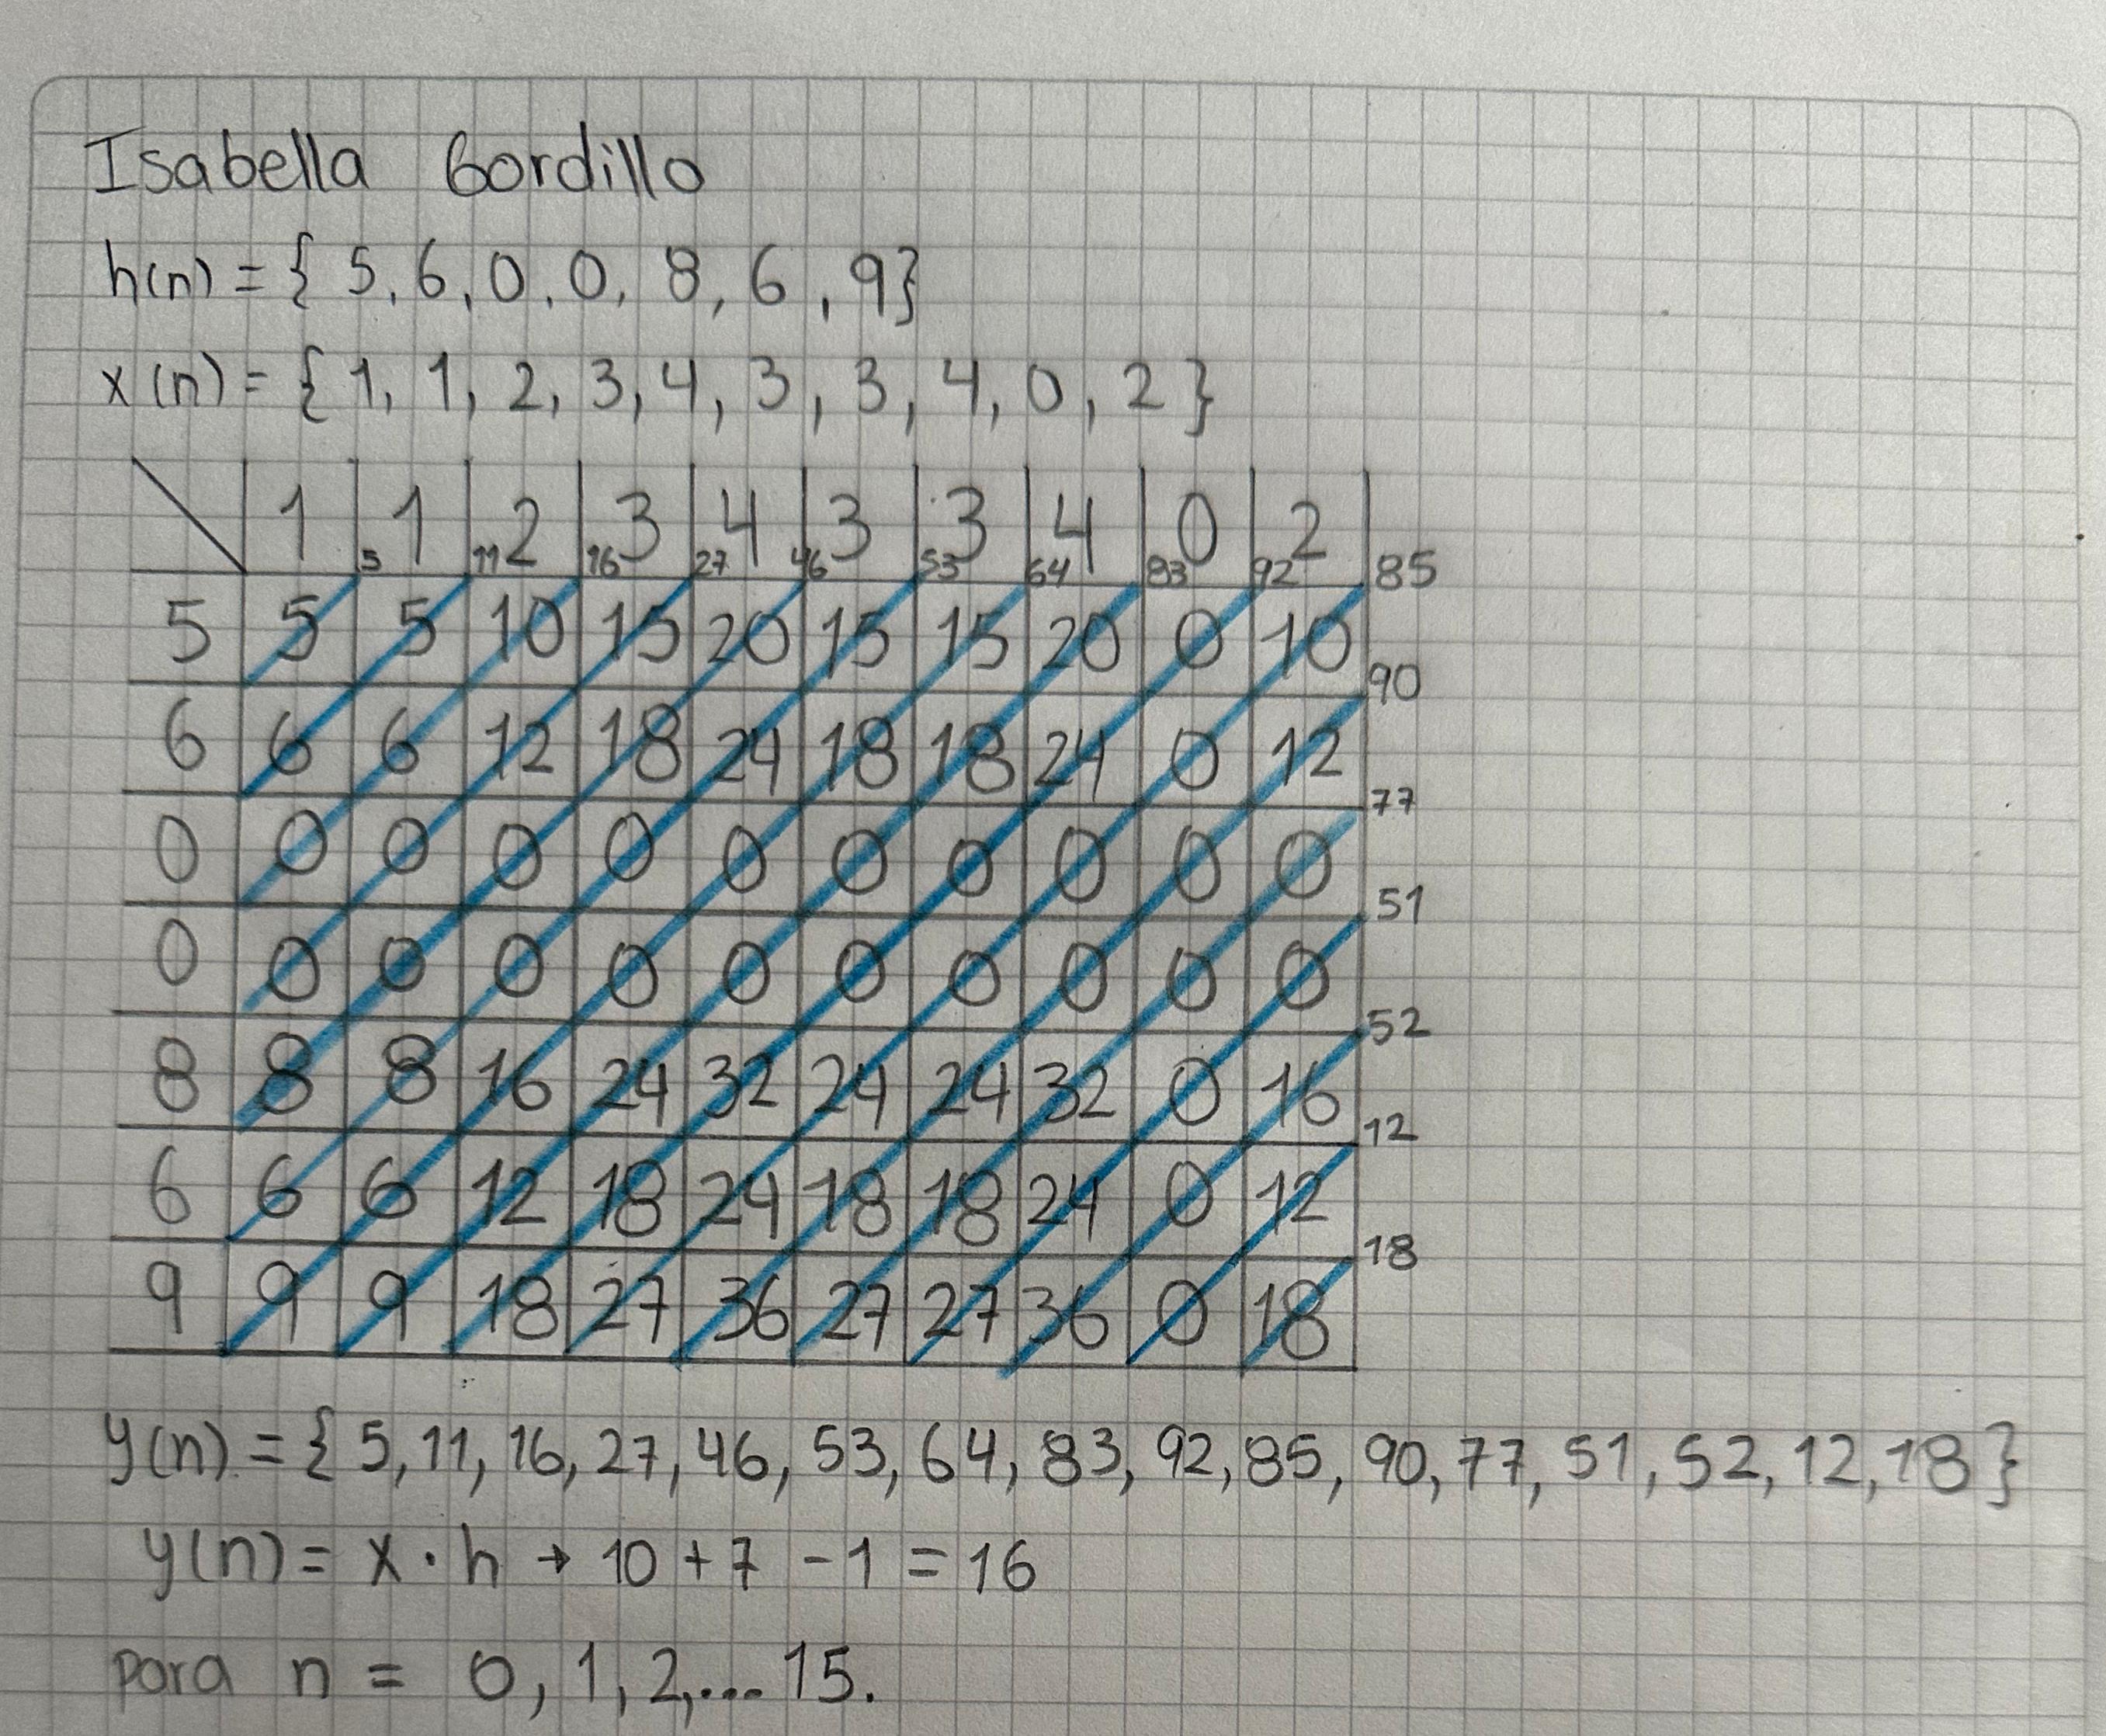 Isabella Gordillo
h(n) = { 5, 6, 0, 0, 8, 6, 9}
x(n) = { 1, 1, 2, 3, 4, 3, 3, 4, 0, 2 }
1 1 2 3 4 3 3 4 0 2
5 11 16 27 46 53 64 83 92 85
5 5 5 10 15 20 15 15 20 0 10 90
6 6 6 12 18 24 18 18 24 0 12 77
0 0 0 0 0 0 0 0 0 0 0 51
0 0 0 0 0 0 0 0 0 0 0 52
8 8 8 16 24 32 24 24 32 0 16 12
6 6 6 12 18 24 18 18 24 0 12 18
9 9 9 18 27 36 27 27 36 0 18
y(n) = { 5, 11, 16, 27, 46, 53, 64, 83, 92, 85, 90, 77, 51, 52, 12, 18 }
y(n) = x · h → 10 + 7 - 1 = 16
para n = 0, 1, 2, ... 15.